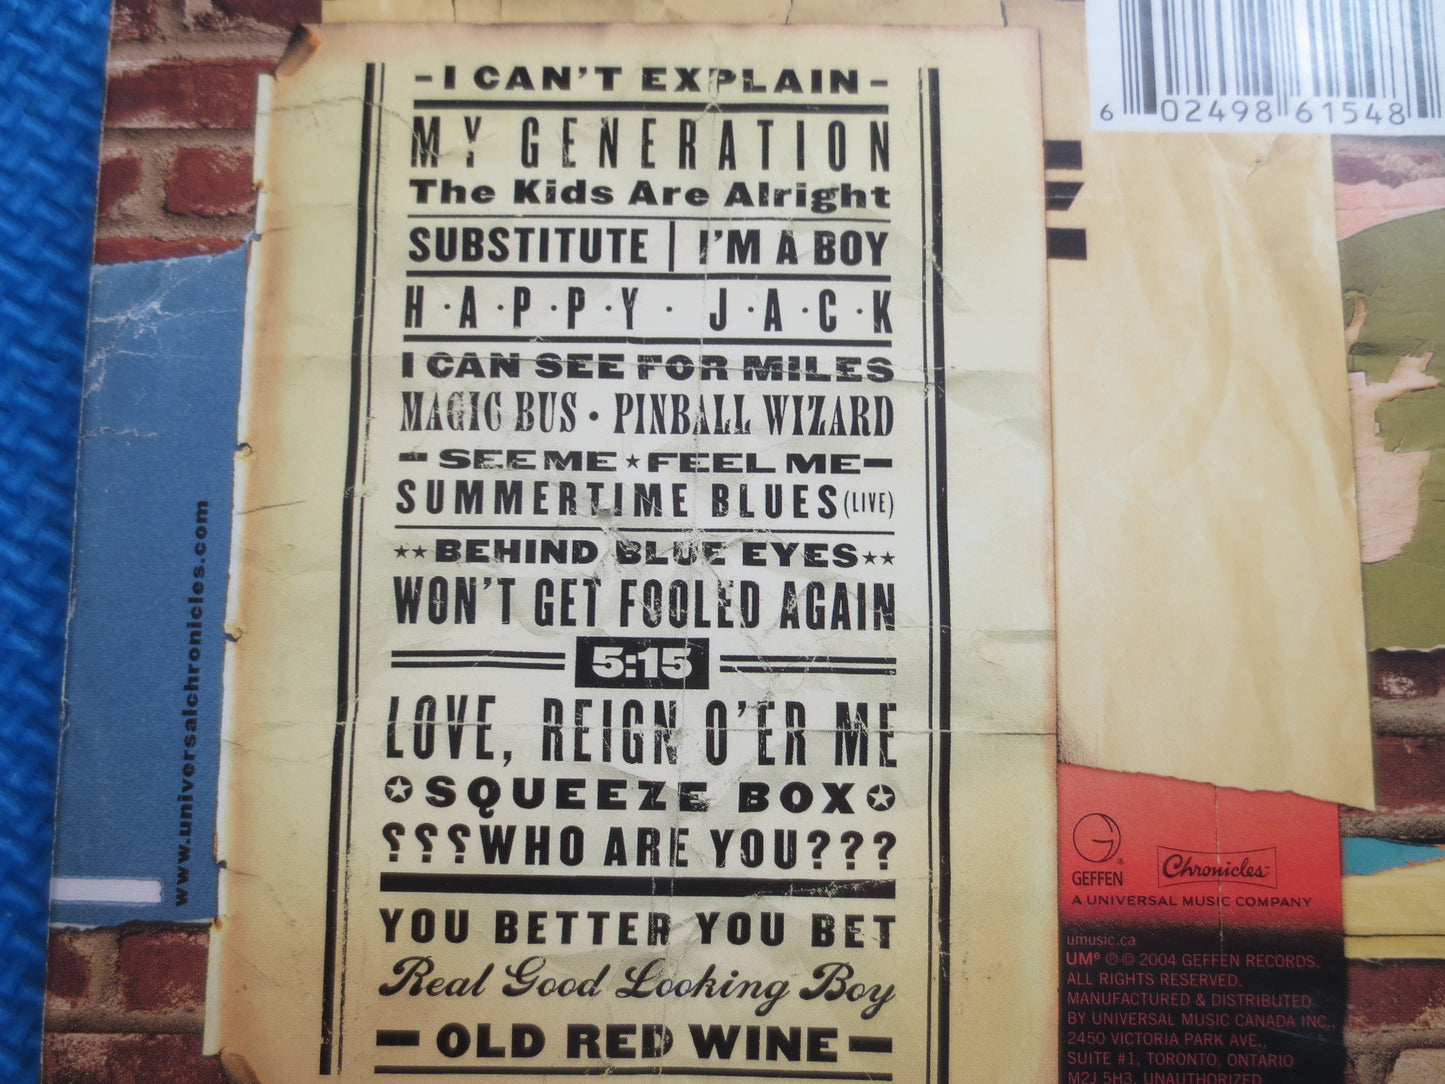 -I CAN'T EXPLAIN-
MY GENERATION
The Kids Are Alright
SUBSTITUTE | I'M A BOY
H·A·P·P·Y · J·A·C·K
I CAN SEE FOR MILES
MAGIC BUS • PINBALL WIZARD
-SEE ME★FEEL ME-
SUMMERTIME BLUES (LIVE)
★★BEHIND BLUE EYES★★
WON'T GET FOOLED AGAIN
5:15
LOVE, REIGN O'ER ME
✪SQUEEZE BOX✪
⸮⸮⸮WHO ARE YOU???
YOU BETTER YOU BET
Real Good Looking Boy
-OLD RED WINE-
www.universalchronicles.com
6 02498 61548
GEFFEN
Chronicles
A UNIVERSAL MUSIC COMPANY
umusic.ca
UMe ℗ © 2004 GEFFEN RECORDS.
ALL RIGHTS RESERVED.
MANUFACTURED & DISTRIBUTED
BY UNIVERSAL MUSIC CANADA INC.,
2450 VICTORIA PARK AVE.,
SUITE #1, TORONTO, ONTARIO
M2J 5H3. UNAUTHORIZED